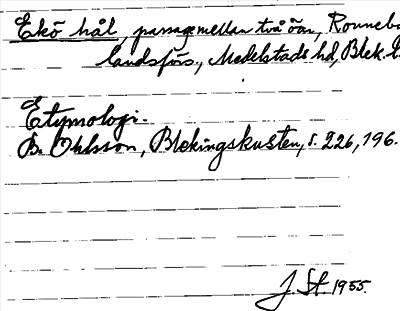 Ekö hål, passage mellan två öar, Ronneby
landsförs., Medelstads hd, Blek. l.
Etymologi.
B. Ohlsson, Blekingskusten, s. 226, 196.
J. St. 1955.